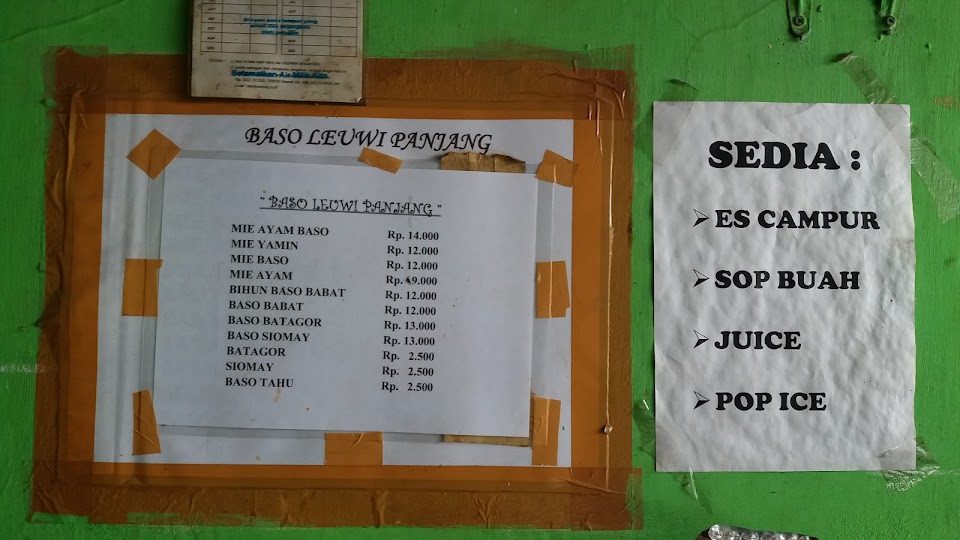 Selamatkan Air Milik Kita.
BASO LEUWI PANJANG
" BASO LEUWI PANJANG "
MIE AYAM BASO Rp. 14.000
MIE YAMIN Rp. 12.000
MIE BASO Rp. 12.000
MIE AYAM Rp. 9.000
BIHUN BASO BABAT Rp. 12.000
BASO BABAT Rp. 12.000
BASO BATAGOR Rp. 13.000
BASO SIOMAY Rp. 13.000
BATAGOR Rp. 2.500
SIOMAY Rp. 2.500
BASO TAHU Rp. 2.500
SEDIA :
➢ ES CAMPUR
➢ SOP BUAH
➢ JUICE
➢ POP ICE